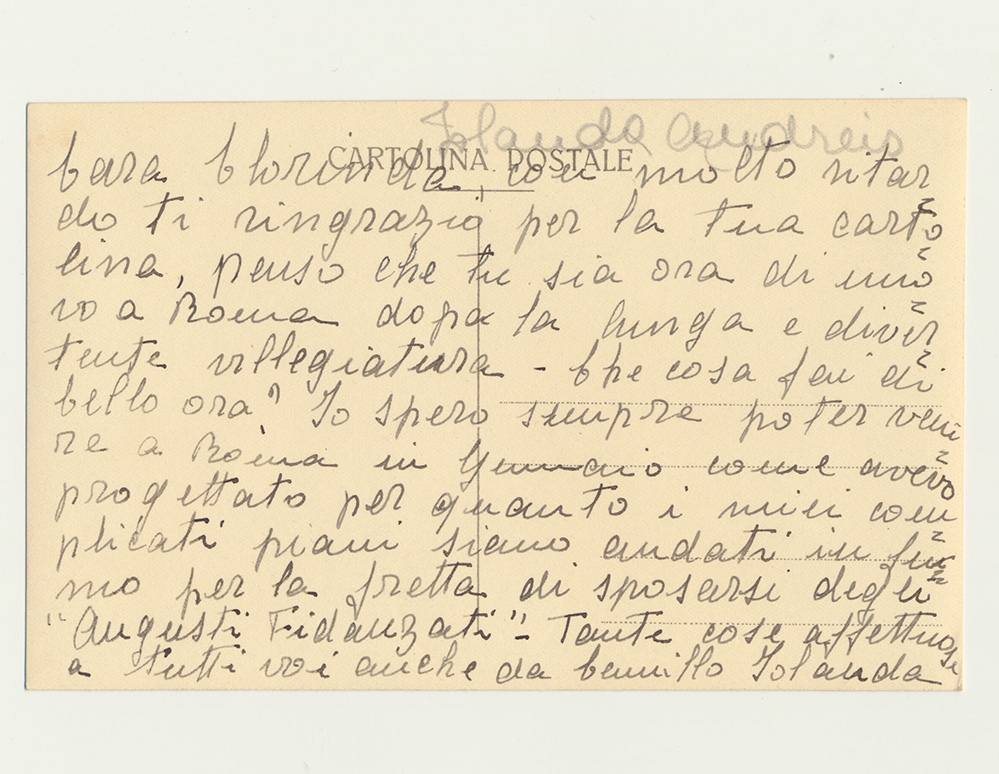 Iolanda Andreis
CARTOLINA POSTALE
Cara Clorinda, con molto ritar
do ti ringrazio per la tua carto
lina, penso che tu sia ora di nuo
vo a Roma dopo la lunga e diver
tente villegiatura - Che cosa fai di
bello ora? Io spero sempre poter veni
re a Roma in Gennaio come avevo
progettato per quanto i miei com
plicati piani siano andati in fu
mo per la fretta di sposarsi degli
"Augusti Fidanzati" - Tante cose affettuose
a tutti voi anche da Camillo Iolanda